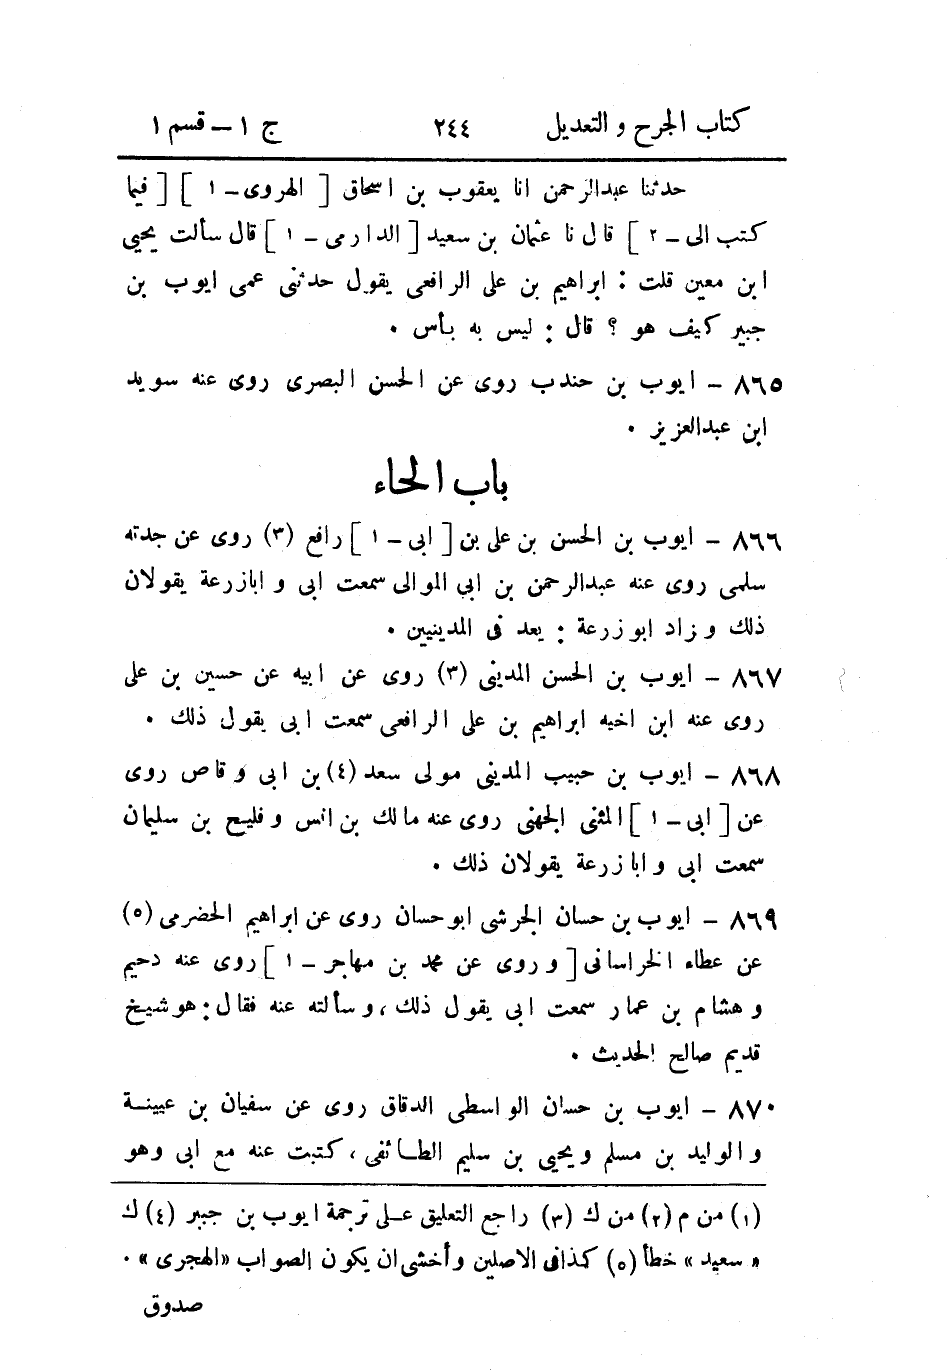 كتاب الجرح و التعديل ٢٤٤ ج ١ – قسم ١
حدثنا عبدالرحمن انا يعقوب بن اسحاق [ الهروى – ١ ] [ فيما
كتب الى – ٢ ] قال نا عثمان بن سعيد [ الدارمى – ١ ] قال سألت يحيى
ابن معين قلت : ابراهيم بن على الرافعى يقول حدثنى عمى ايوب بن
جبير كيف هو ؟ قال : ليس به بأس .
٨٦٥ – ايوب بن حندب روى عن الحسن البصرى روى عنه سويد
ابن عبدالعزيز .
باب الحاء
٨٦٦ – ايوب بن الحسن بن على بن [ ابى – ١ ] رافع (٣) روى عن جدته
سلمى روى عنه عبدالرحمن بن ابي الموالى سمعت ابى و ابازرعة يقولان
ذلك و زاد ابو زرعة : يعد فى المدينيين .
٨٦٧ – ايوب بن الحسن المدينى (٣) روى عن ابيه عن حسين بن على
روى عنه ابن اخيه ابراهيم بن على الرافعى سمعت ابى يقول ذلك .
٨٦٨ – ايوب بن حبيب المدينى مولى سعد (٤) بن ابى وقاص روى
عن [ ابى – ١ ] المثنى الجهنى روى عنه مالك بن انس و فليح بن سليمان
سمعت ابى و ابا زرعة يقولان ذلك .
٨٦٩ – ايوب بن حسان الجرشى ابو حسان روى عن ابراهيم الحضرمى (٥)
عن عطاء الخراسانى [ و روى عن محمد بن مهاجر – ١ ] روى عنه دحيم
و هشام بن عمار سمعت ابى يقول ذلك ، و سألته عنه فقال : هو شيخ
قديم صالح الحديث .
٨٧٠ – ايوب بن حسان الواسطى الدقاق روى عن سفيان بن عيينة
و الوليد بن مسلم و يحيى بن سليم الطائفى ، كتبت عنه مع ابى وهو
(١) من م (٢) من ك (٣) راجع التعليق على ترجمة ايوب بن جبير (٤) ك
« سعيد » خطأ (٥) كذا فى الاصلين و أخشى ان يكون الصواب «الهجرى» .
صدوق